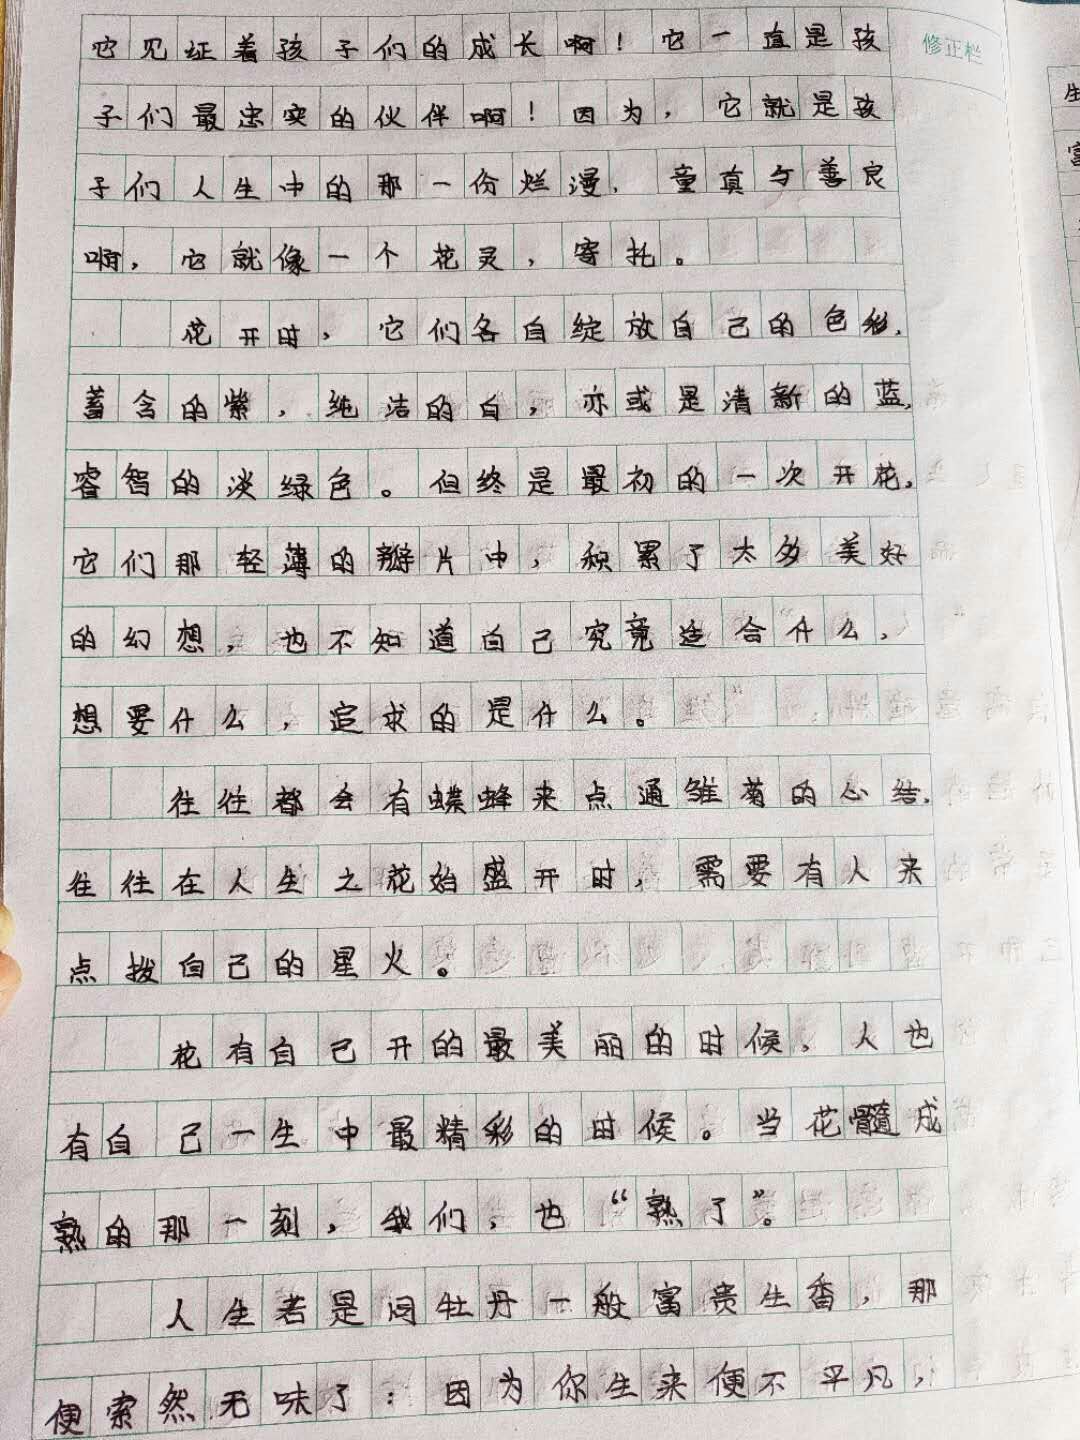 它见证着孩子们的成长啊！它一直是孩
修正栏
子们最忠实的伙伴啊！因为，它就是孩
子们人生中的那一份烂漫、童真与善良
啊，它就像一个花灵，寄托。
花开时，它们各自绽放自己的色彩，
蓄含的紫，纯洁的白，亦或是清新的蓝，
睿智的淡绿色。但终是最初的一次开花，
它们那轻薄的瓣片中，积累了太多美好
的幻想，也不知道自己究竟适合什么，
想要什么，追求的是什么。
往往都会有蝶蜂来点通雏菊的心结，
往往在人生之花始盛开时，需要有人来
点拨自己的星火。
花有自己开的最美丽的时候，人也
有自己一生中最精彩的时候。当花髓成
熟的那一刻，我们，也“熟了”。
人生若是同牡丹一般富贵生香，那
便索然无味了：因为你生来便不平凡，